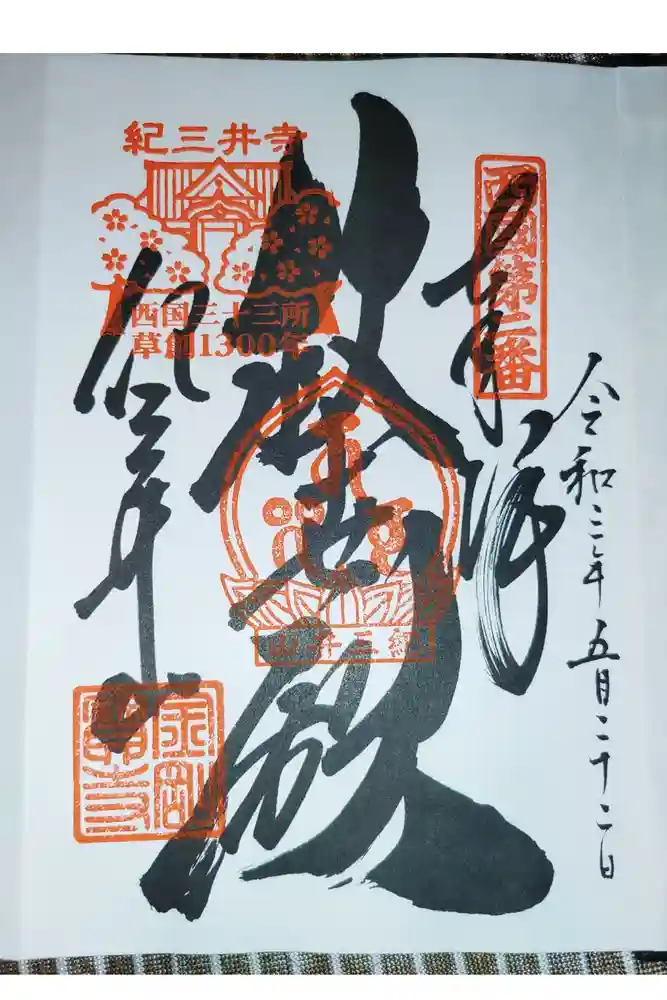 西国第二番
奉拝
令和三年五月二十二日
救世殿
紀三井山
紀三井寺
西国三十三所
草創1300年
紀三井寺
金剛
寶寺